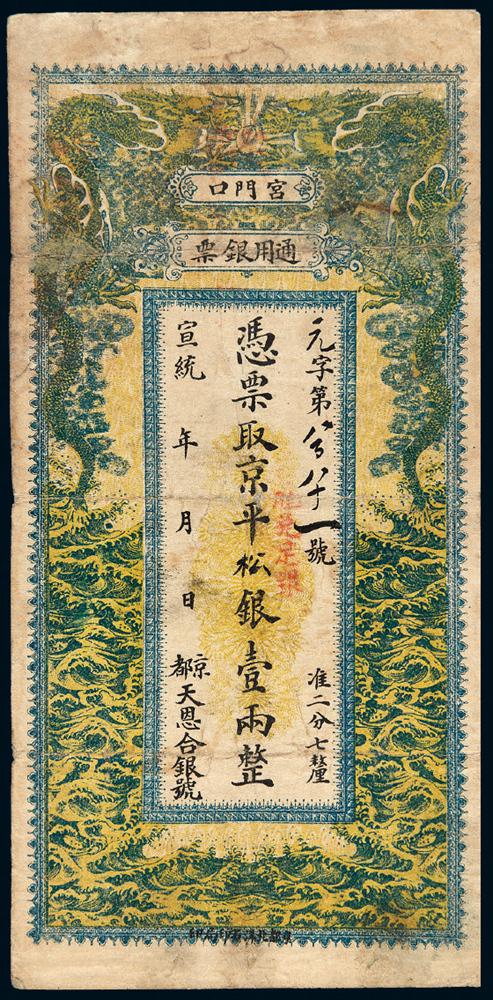 宮門口
通用銀票
元字第
號
准二分七釐
憑票取京平松銀壹兩整
宣統 年 月 日
京都天恩合銀號